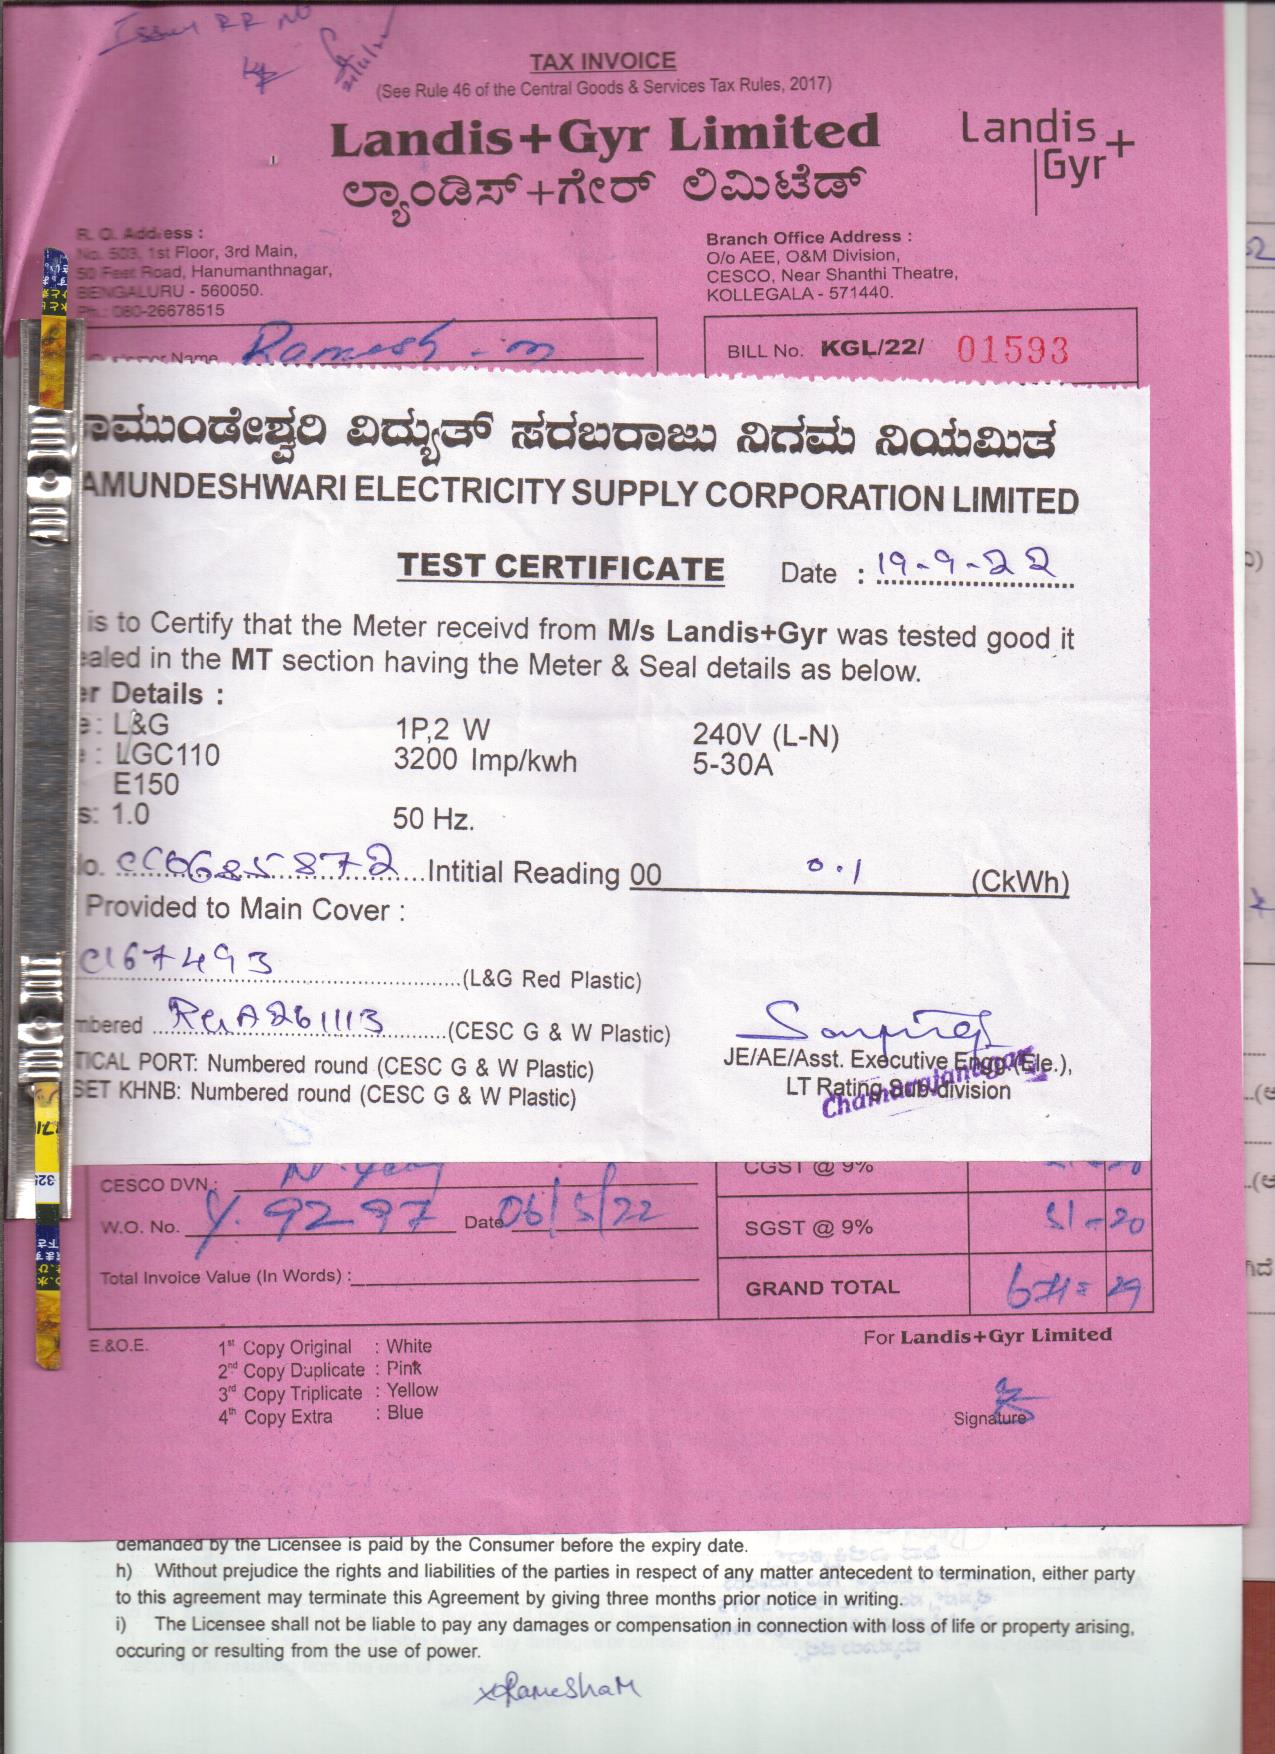 Issue RR No
TAX INVOICE
(See Rule 46 of the Central Goods & Services Tax Rules, 2017)
Landis+Gyr Limited
ಲ್ಯಾಂಡಿಸ್+ಗೇರ್ ಲಿಮಿಟೆಡ್
Landis
Gyr+
R. O. Address :
No. 503, 1st Floor, 3rd Main,
50 Feet Road, Hanumanthnagar,
BENGALURU - 560050.
Ph.: 080-26678515
Branch Office Address :
O/o AEE, O&M Division,
CESCO, Near Shanthi Theatre,
KOLLEGALA - 571440.
Name Ramesh - m
BILL No. KGL/22/ 01593
ಾಮುಂಡೇಶ್ವರಿ ವಿದ್ಯುತ್ ಸರಬರಾಜು ನಿಗಮ ನಿಯಮಿತ
AMUNDESHWARI ELECTRICITY SUPPLY CORPORATION LIMITED
TEST CERTIFICATE
Date : 19-9-22
is to Certify that the Meter receivd from M/s Landis+Gyr was tested good it
ealed in the MT section having the Meter & Seal details as below.
er Details :
e : L&G 1P,2 W 240V (L-N)
: LGC110 3200 Imp/kwh 5-30A
E150
s: 1.0 50 Hz.
lo. CC0685872 Intitial Reading 00 0.1 (CkWh)
Provided to Main Cover :
C167493 (L&G Red Plastic)
mbered RGA261113 (CESC G & W Plastic)
TICAL PORT: Numbered round (CESC G & W Plastic)
SET KHNB: Numbered round (CESC G & W Plastic)
JE/AE/Asst. Executive Engg.(Ele.),
LT Rating Sub-division
Chamarajanagar
CESCO DVN :
CGST @ 9%
W.O. No. Y. 9297 Date 06/5/22
SGST @ 9% 51-20
Total Invoice Value (In Words) :
GRAND TOTAL 671= 29
E.&O.E.
1st Copy Original : White
2nd Copy Duplicate : Pink
3rd Copy Triplicate : Yellow
4th Copy Extra : Blue
For Landis+Gyr Limited
Signature
demanded by the Licensee is paid by the Consumer before the expiry date.
h) Without prejudice the rights and liabilities of the parties in respect of any matter antecedent to termination, either party
to this agreement may terminate this Agreement by giving three months prior notice in writing.
i) The Licensee shall not be liable to pay any damages or compensation in connection with loss of life or property arising,
occuring or resulting from the use of power.
RameshaM